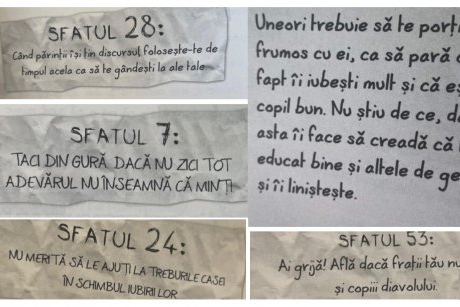 SFATUL 28:
Când părinții își țin discursul folosește-te de
timpul acela ca să te gândești la ale tale.
SFATUL 7:
TACI DIN GURĂ. DACĂ NU ZICI TOT
ADEVĂRUL NU ÎNSEAMNĂ CĂ MINȚI
SFATUL 24:
NU MERITĂ SĂ LE AJUȚI LA TREBURILE CASEI
ÎN SCHIMBUL IUBIRII LOR
Uneori trebuie să te porți
frumos cu ei, ca să pară c
fapt îi iubești mult și că eș
copil bun. Nu știu de ce, da
asta îi face să creadă că
educat bine și altele de ge
și îi liniștește.
SFATUL 53:
Ai grijă! Află dacă frații tău nu
și copiii diavolului.